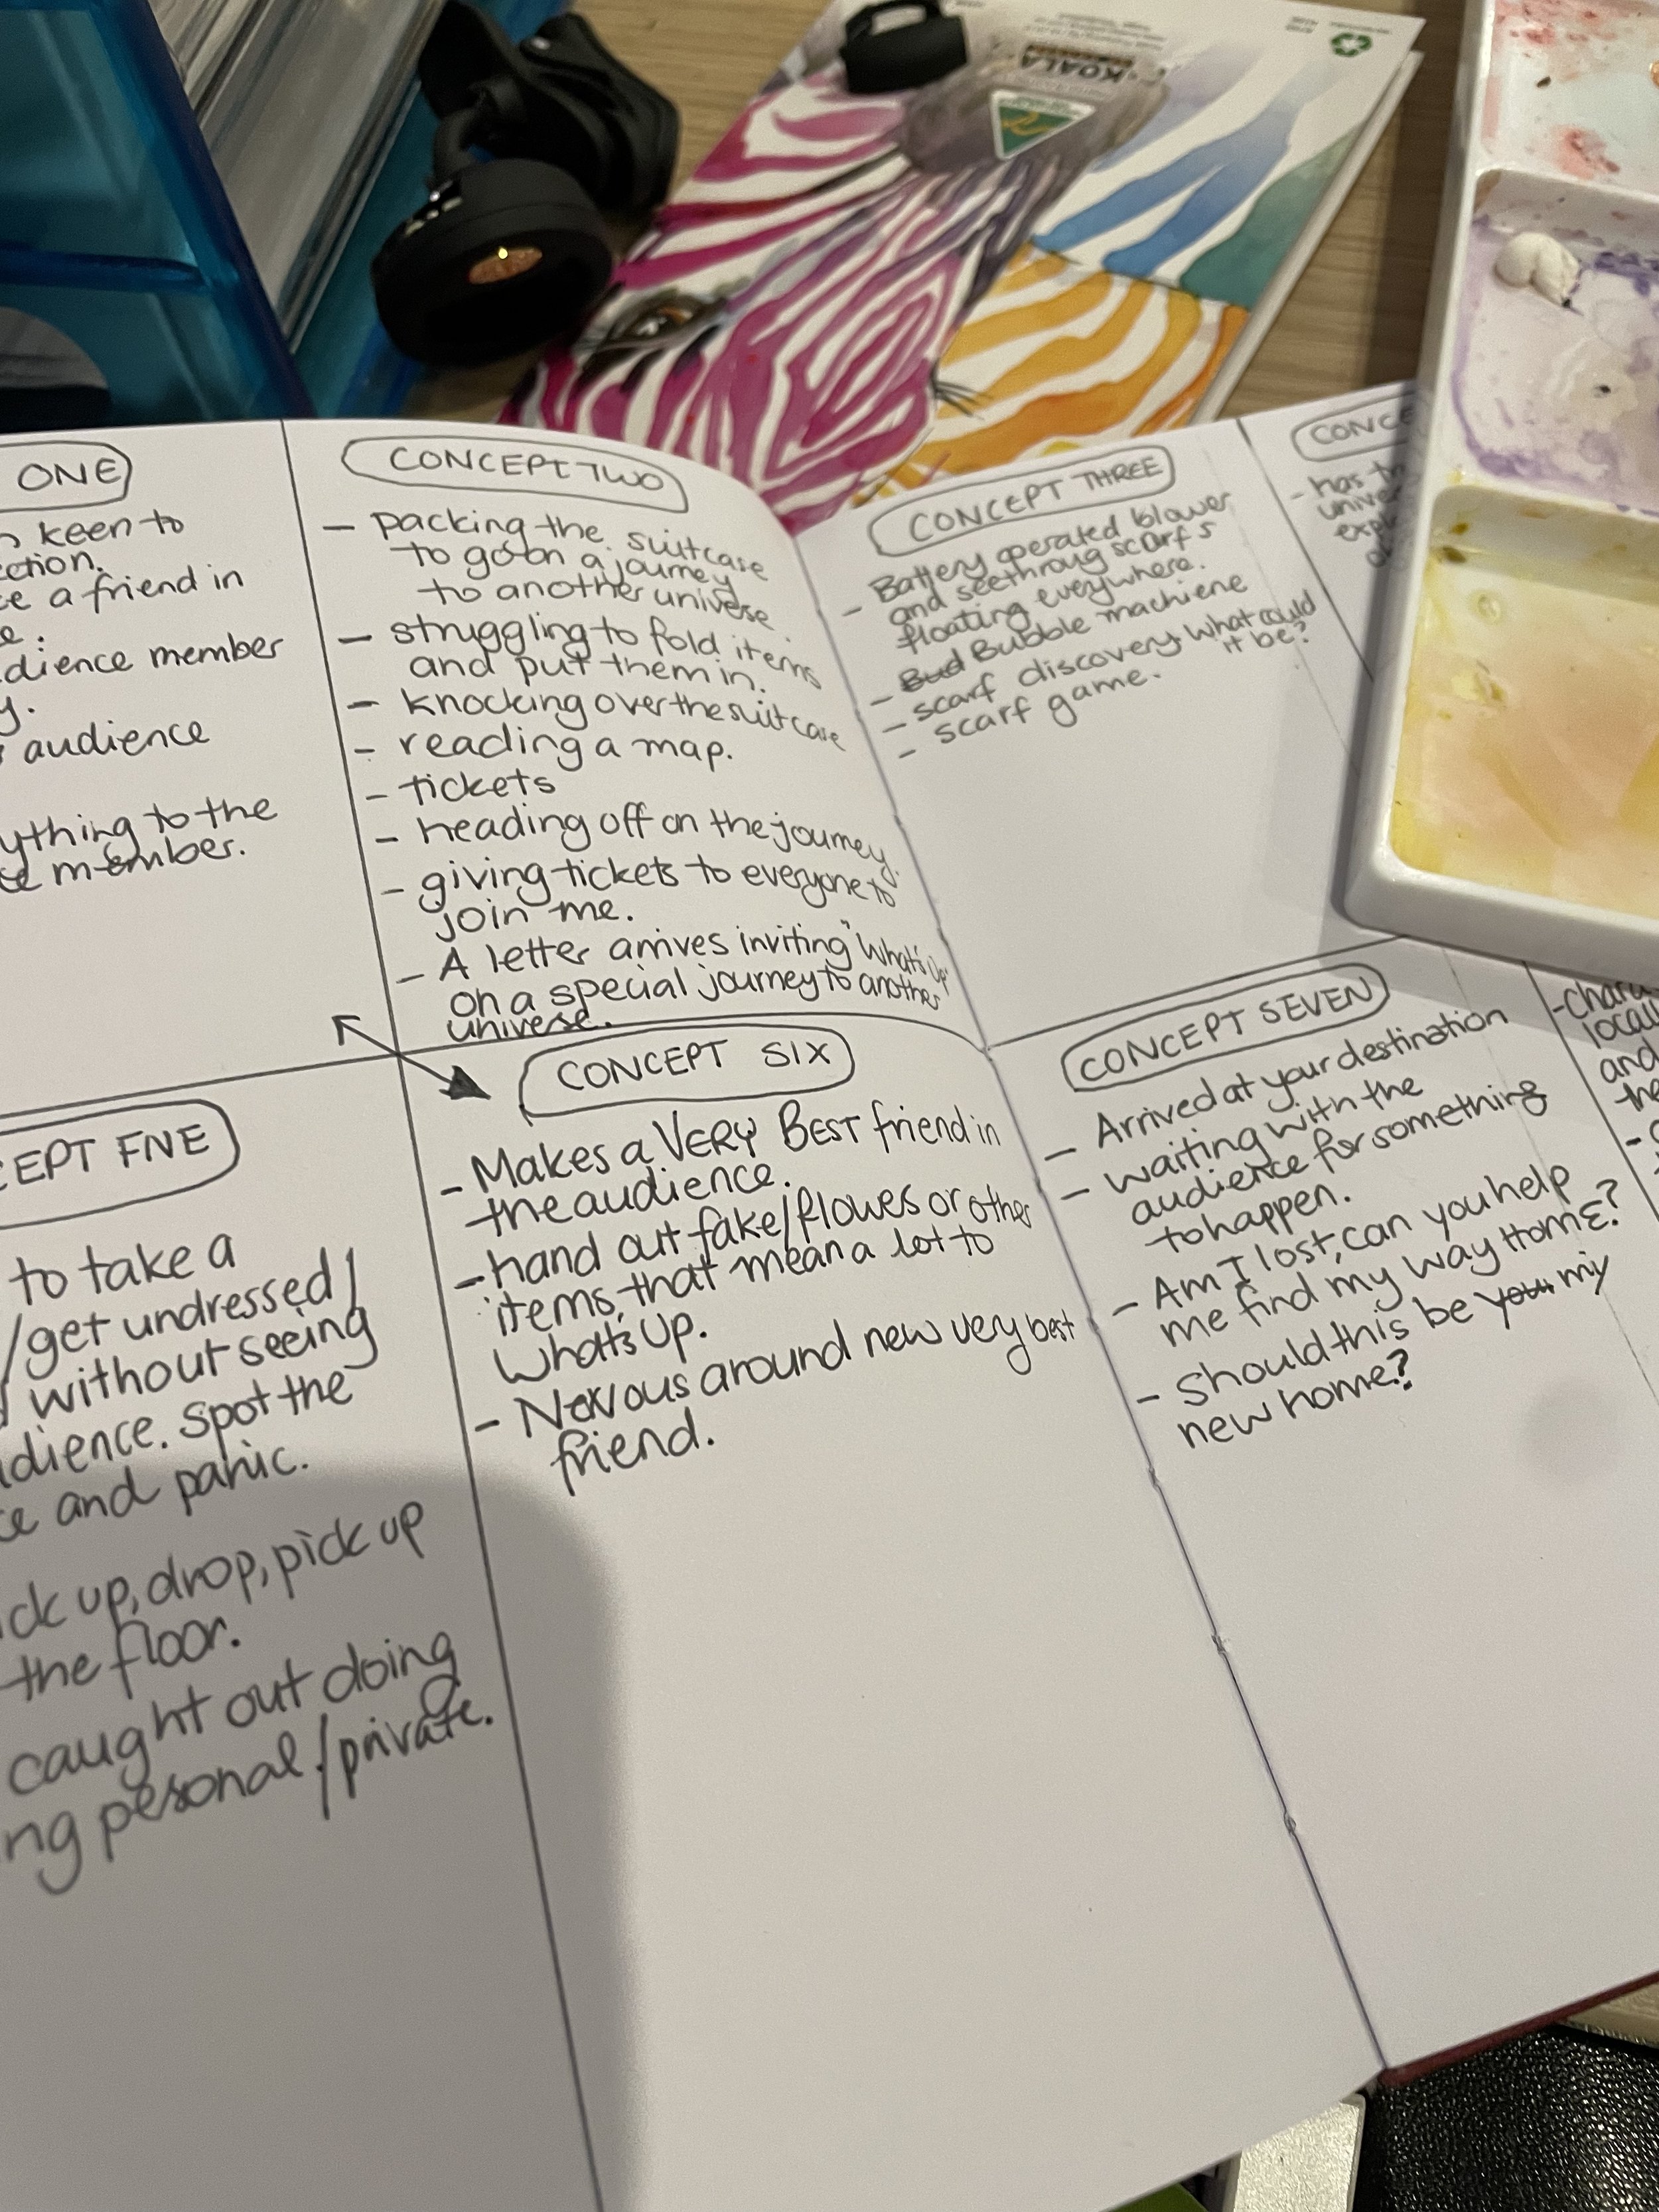 ONE
keen to
ction.
a friend in
audience member
audience
ything to the
member.
CONCEPT TWO
- packing the suitcase
to go on a journey
to another universe.
- struggling to fold items
and put them in.
- knocking over the suitcase
- reading a map.
- tickets
- heading off on the journey.
- giving tickets to everyone to
join me.
- A letter arrives inviting "What's Up"
on a special journey to another
universe.
CONCEPT THREE
- Battery operated blower
and seethroug scarfs
floating everywhere.
- Bud Bubble machiene
- scarf discovery what could
it be?
- scarf game.
CONCE
- has
unive
expl
CEPT FIVE
to take a
/get undressed/
without seeing
dience. Spot the
and panic.
ck up, drop, pick up
the floor.
caught out doing
ng pesonal/private.
CONCEPT SIX
- Makes a VERY BEST friend in
the audience.
- hand out fake/flowes or other
items, that mean a lot to
What's Up.
- Nervous around new very best
friend.
CONCEPT SEVEN
- Arrived at your destination
- waiting with the
audience for something
to happen.
- Am I lost, can you help
me find my way Home?
- Should this be your my
new home?
- chara
local
and
the
KOALA